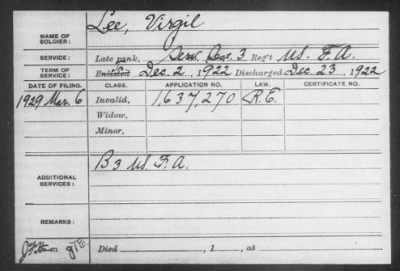 Lee, Virgil
NAME OF
SOLDIER:
SERVICE:
Late rank, Serv. 3 Reg't U.S. F.A.
TERM OF
SERVICE:
Enlisted Dec. 2, 1922 Discharged Dec. 23, 1922
DATE OF FILING. CLASS. APPLICATION NO. LAW. CERTIFICATE NO.
1929 Mar. 6 Invalid, 1,637,270 R.E.
Widow,
Minor,
ADDITIONAL
SERVICES:
B 3 U.S. F.A.
REMARKS:
Died , 1 , at